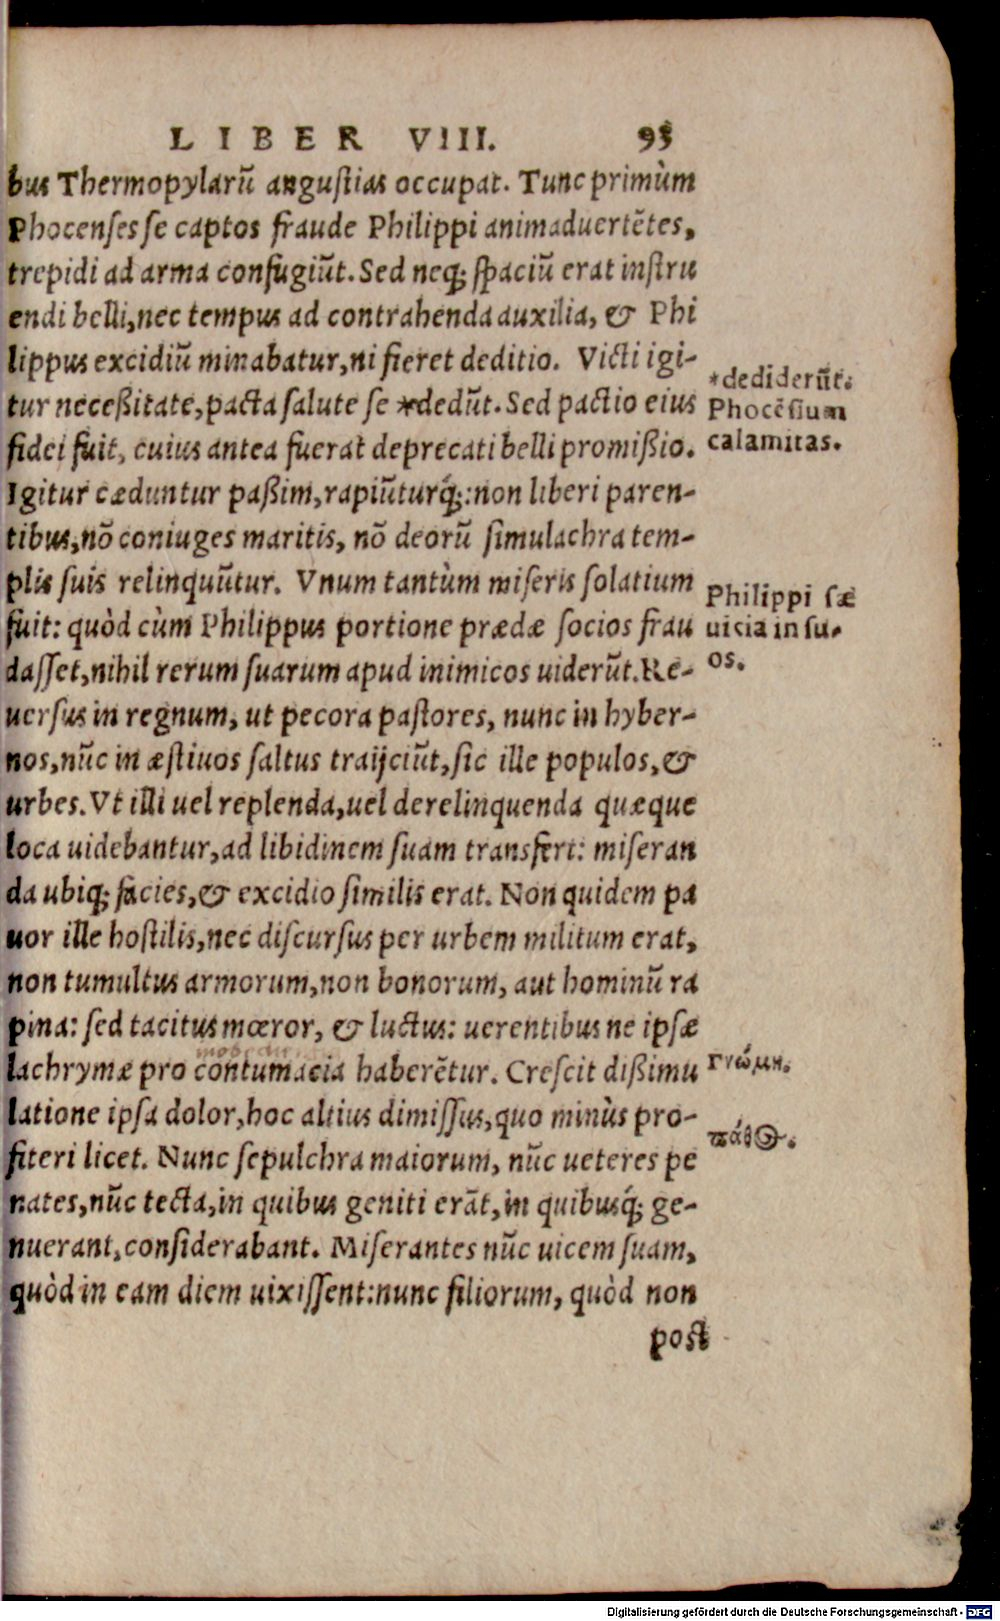 LIBER VIII. 95
bus Thermopylarũ angustias occupat. Tunc primùm
Phocenses se captos fraude Philippi animaduertẽtes,
trepidi ad arma confugiũt. Sed neq; spaciũ erat instru
endi belli, nec tempus ad contrahenda auxilia, & Phi
lippus excidiũ minabatur, ni fieret deditio. Victi igi-
tur neceßitate, pacta salute se *dedũt. Sed pactio eius
fidei fuit, cuius antea fuerat deprecati belli promißio.
Igitur cæduntur paßim, rapiũturq́;: non liberi paren-
tibus, nõ coniuges maritis, nõ deorũ simulachra tem-
plis suis relinquũtur. Vnum tantùm miseris solatium
fuit: quòd cùm Philippus portione prædæ socios frau
dasset, nihil rerum suarum apud inimicos uiderũt. Re-
uersus in regnum, ut pecora pastores, nunc in hyber-
nos, nũc in æstiuos saltus traijciũt, sic ille populos, &
urbes. Vt illi uel replenda, uel derelinquenda quæque
loca uidebantur, ad libidinem suam transfert: miseran
da ubiq; facies, & excidio similis erat. Non quidem pa
uor ille hostilis, nec discursus per urbem militum erat,
non tumultus armorum, non bonorum, aut hominũ ra
pina: sed tacitus mœror, & luctus: uerentibus ne ipsæ
lachrymæ pro contumacia haberẽtur. Crescit dißimu
latione ipsa dolor, hoc altius dimissus, quo minùs pro-
fiteri licet. Nunc sepulchra maiorum, nũc ueteres pe
nates, nũc tecta, in quibus geniti erãt, in quibusq́; ge-
nuerant, considerabant. Miserantes nũc uicem suam,
quòd in eam diem uixissent: nunc filiorum, quòd non
post
*dediderũt.
Phocẽsium
calamitas.
Philippi sæ
uicia in su-
os.
Γνώμη.
πάθος.
Digitalisierung gefördert durch die Deutsche Forschungsgemeinschaft - DFG